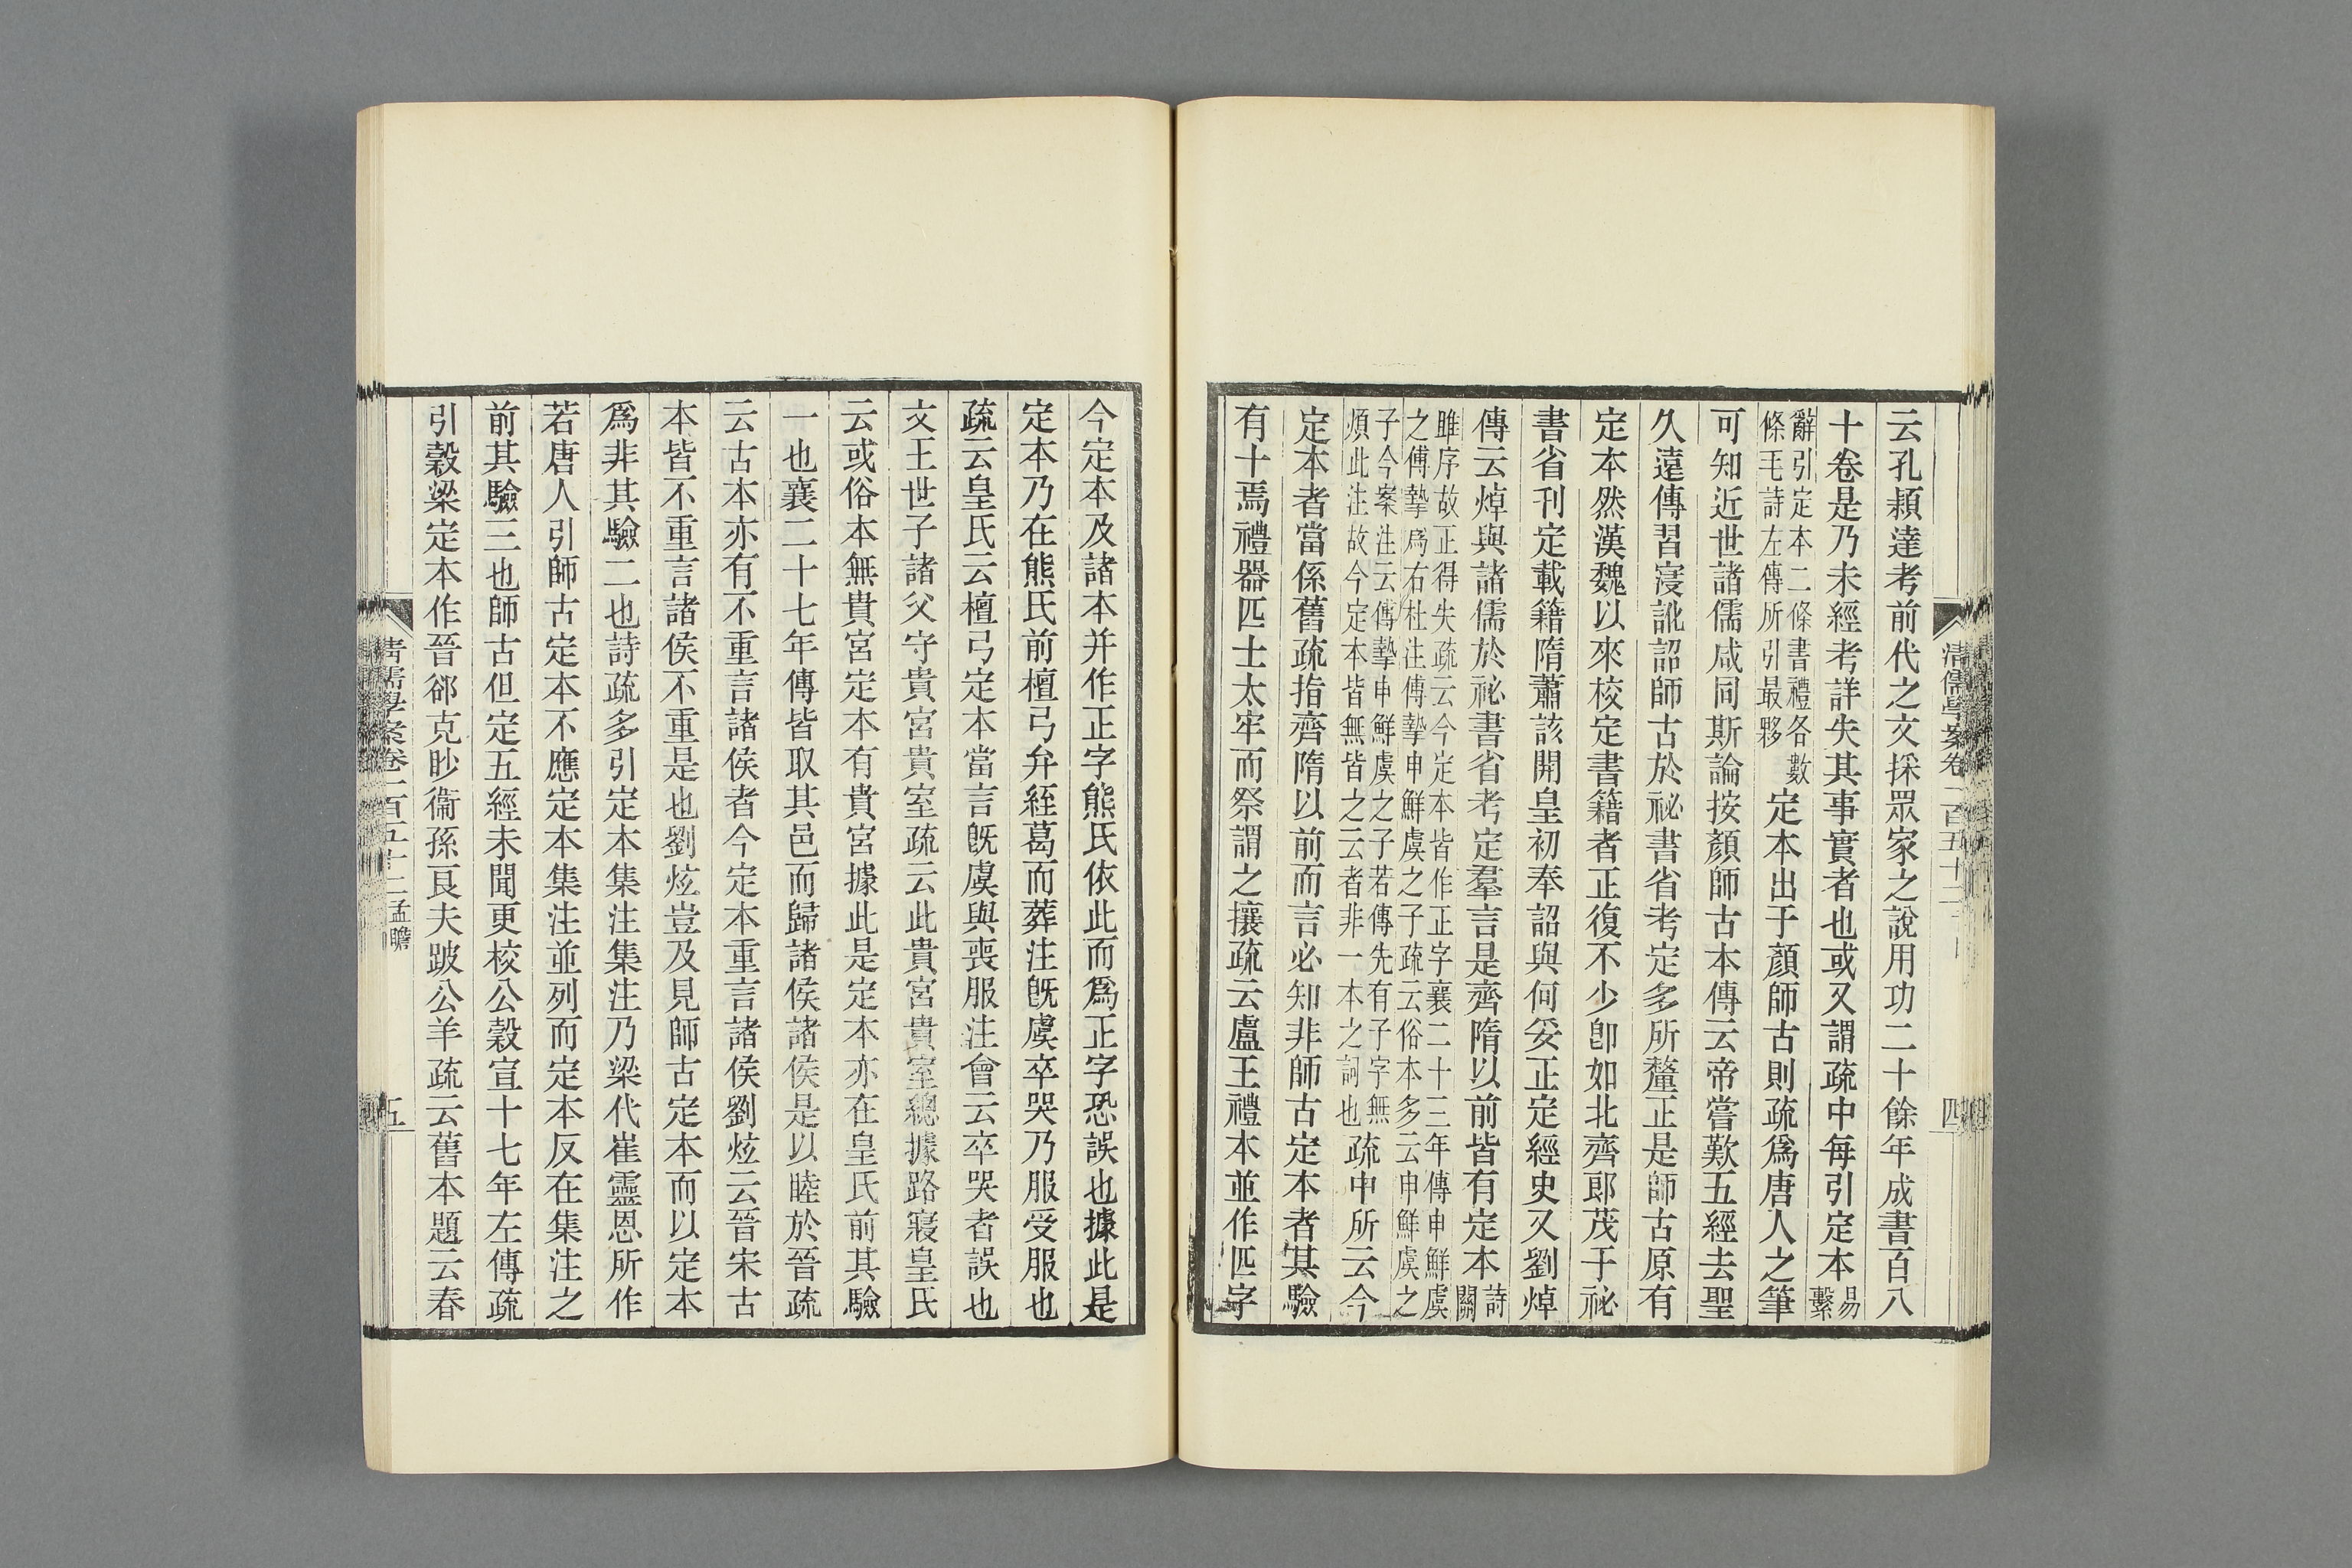 云孔穎達考前代之文採眾家之說用功二十餘年成書百八
十卷是乃未經考詳失其事實者也或又謂疏中每引定本易繫
辭引定本二條書禮各數條毛詩左傳所引最夥定本出于顏師古則疏爲唐人之筆
可知近世諸儒咸同斯論按顏師古本傳云帝嘗歎五經去聖
久遠傳習寖訛詔師古於祕書省考定多所釐正是師古原有
定本然漢魏以來校定書籍者正復不少卽如北齊郎茂于祕
書省刊定載籍隋蕭該開皇初奉詔與何妥正定經史又劉焯
傳云焯與諸儒於祕書省考定羣言是齊隋以前皆有定本詩關
雎序故正得失疏云今定本皆作正字襄二十三年傳申鮮虞
之傅摯爲右杜注傅摯申鮮虞之子疏云俗本多云申鮮虞之
子今案注云傅摯申鮮虞之子若傳先有子字無
煩此注故今定本皆無皆之云者非一本之詞也疏中所云今
定本者當係舊疏指齊隋以前而言必知非師古定本者其驗
有十焉禮器匹士太牢而祭謂之攘疏云盧王禮本並作匹字
清儒學案卷二百五十二
四
今定本及諸本并作正字熊氏依此而爲正字恐誤也據此是
定本乃在熊氏前檀弓弁絰葛而葬注旣虞卒哭乃服受服也
疏云皇氏云檀弓定本當言旣虞與喪服注會云卒哭者誤也
文王世子諸父守貴宮貴室疏云此貴宮貴室總據路寢皇氏
云或俗本無貴宮定本有貴宮據此是定本亦在皇氏前其驗
一也襄二十七年傳皆取其邑而歸諸侯諸侯是以睦於晉疏
云古本亦有不重言諸侯者今定本重言諸侯劉炫云晉宋古
本皆不重言諸侯不重是也劉炫豈及見師古定本而以定本
爲非其驗二也詩疏多引定本集注集注乃梁代崔靈恩所作
若唐人引師古定本不應定本集注並列而定本反在集注之
前其驗三也師古但定五經未聞更校公穀宣十七年左傳疏
引穀梁定本作晉郤克眇衞孫良夫跛公羊疏云舊本題云春
清儒學案卷一百五十二孟瞻
五